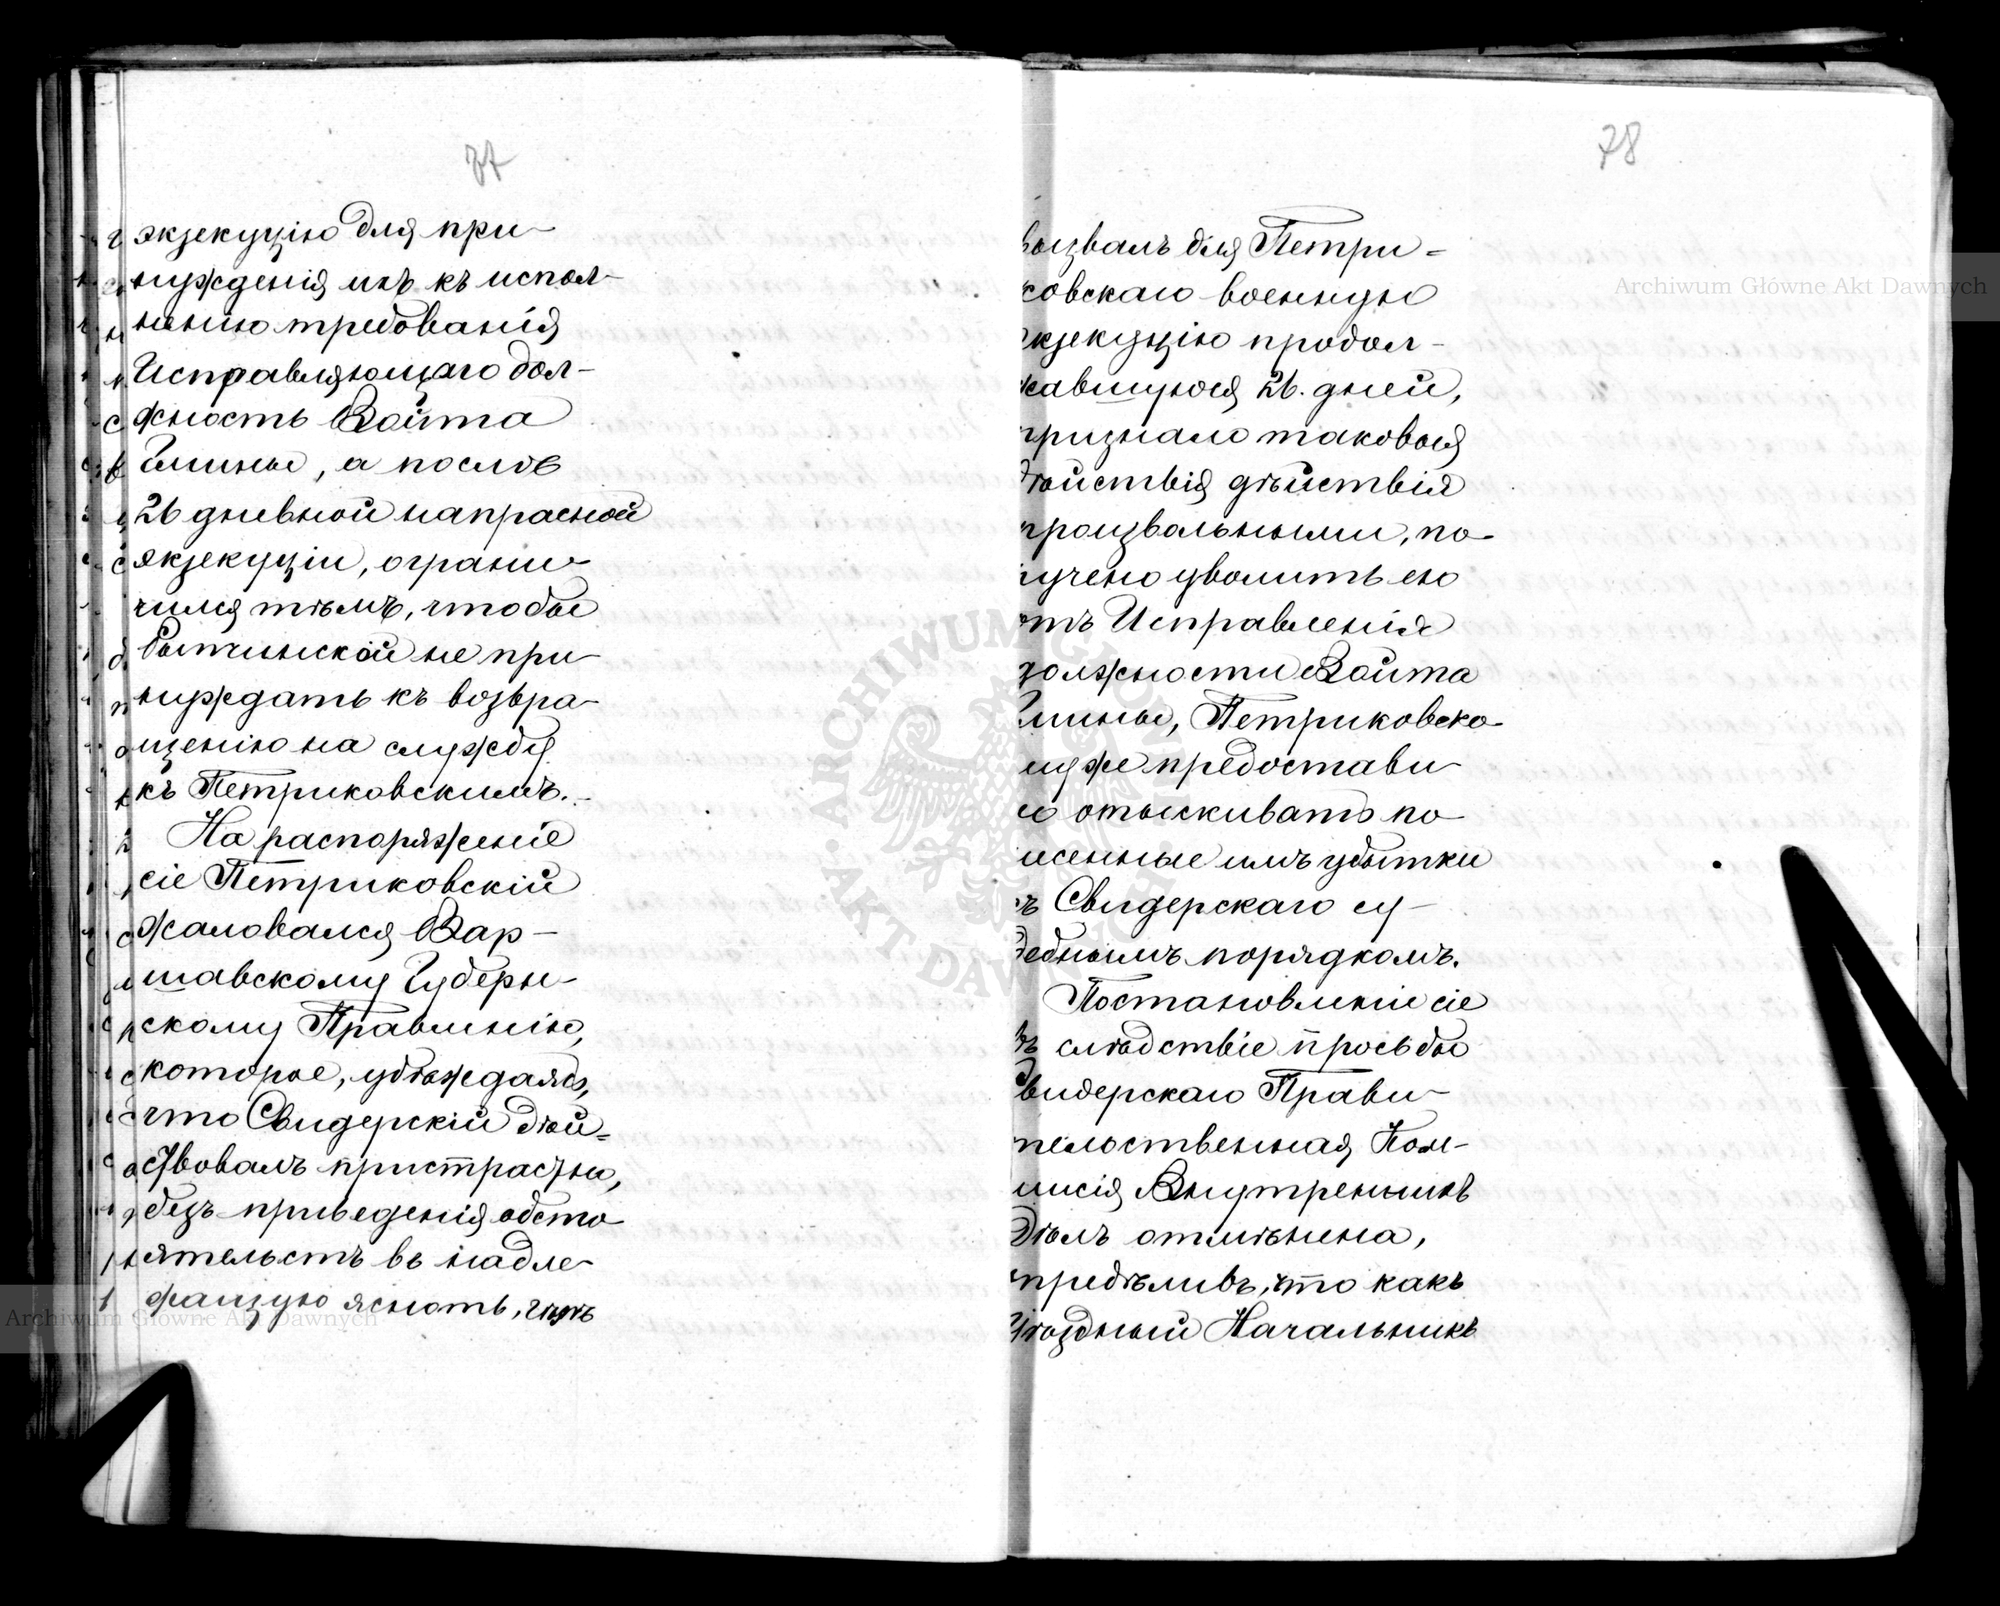 77
экзекуцію для при-
нужденія ихъ къ испол-
ненію требованія
Исправляющаго дол-
жность Войта
Гмины, а послѣ
26 дневной напрасной
экзекуціи, ограни-
чился тѣмъ, чтобы
Бытчинской не при-
нуждать къ возвра-
щенію на службу
къ Петриковскимъ.-
На распоряженіе
сіе Петриковскій
жаловался Вар-
шавскому Губерн-
скому Правленію,
которое, убѣждаясь,
что Свидерскій дѣй-
ствовалъ пристрастно,
безъ приведенія обсто
ятельствъ въ надле-
жащую ясность, чѣмъ
78
вызвалъ для Петри-
ковскаго военную
экзекуцію продол-
жавшуюся 26. дней,
признало таковыя
дѣйствія дѣйствія
произвольными, по-
ручено уволить его
отъ Исправленія
должности Войта
Гмины, Петриковско-
му же предостави-
ло отыскивать по-
несенные имъ убытки
съ Свидерскаго су-
дебнымъ порядкомъ.
Постановленіе сіе
въ слѣдствіе просьбы
Свидерскаго Прави-
тельственная Ком-
мисія Внутреннихъ
Дѣлъ отмѣнена,
опредѣливъ, что какъ
Уѣздный Начальникъ
Archiwum Główne Akt Dawnych
Archiwum Główne Akt Dawnych
ARCHIWUM GŁÓWNE · AKT DAWNYCH ·